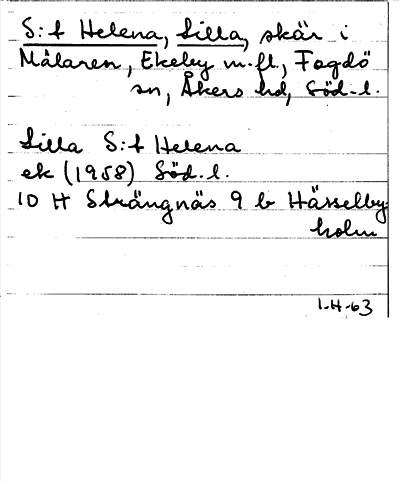 S:t Helena, Lilla, skär i
Mälaren, Ekeby m.fl., Fogdö
sn, Åkers hd, Söd.l.
Lilla S:t Helena
ek (1958) Söd.l.
10 H Strängnäs 9 b Hässelby-
holm
1-H-63